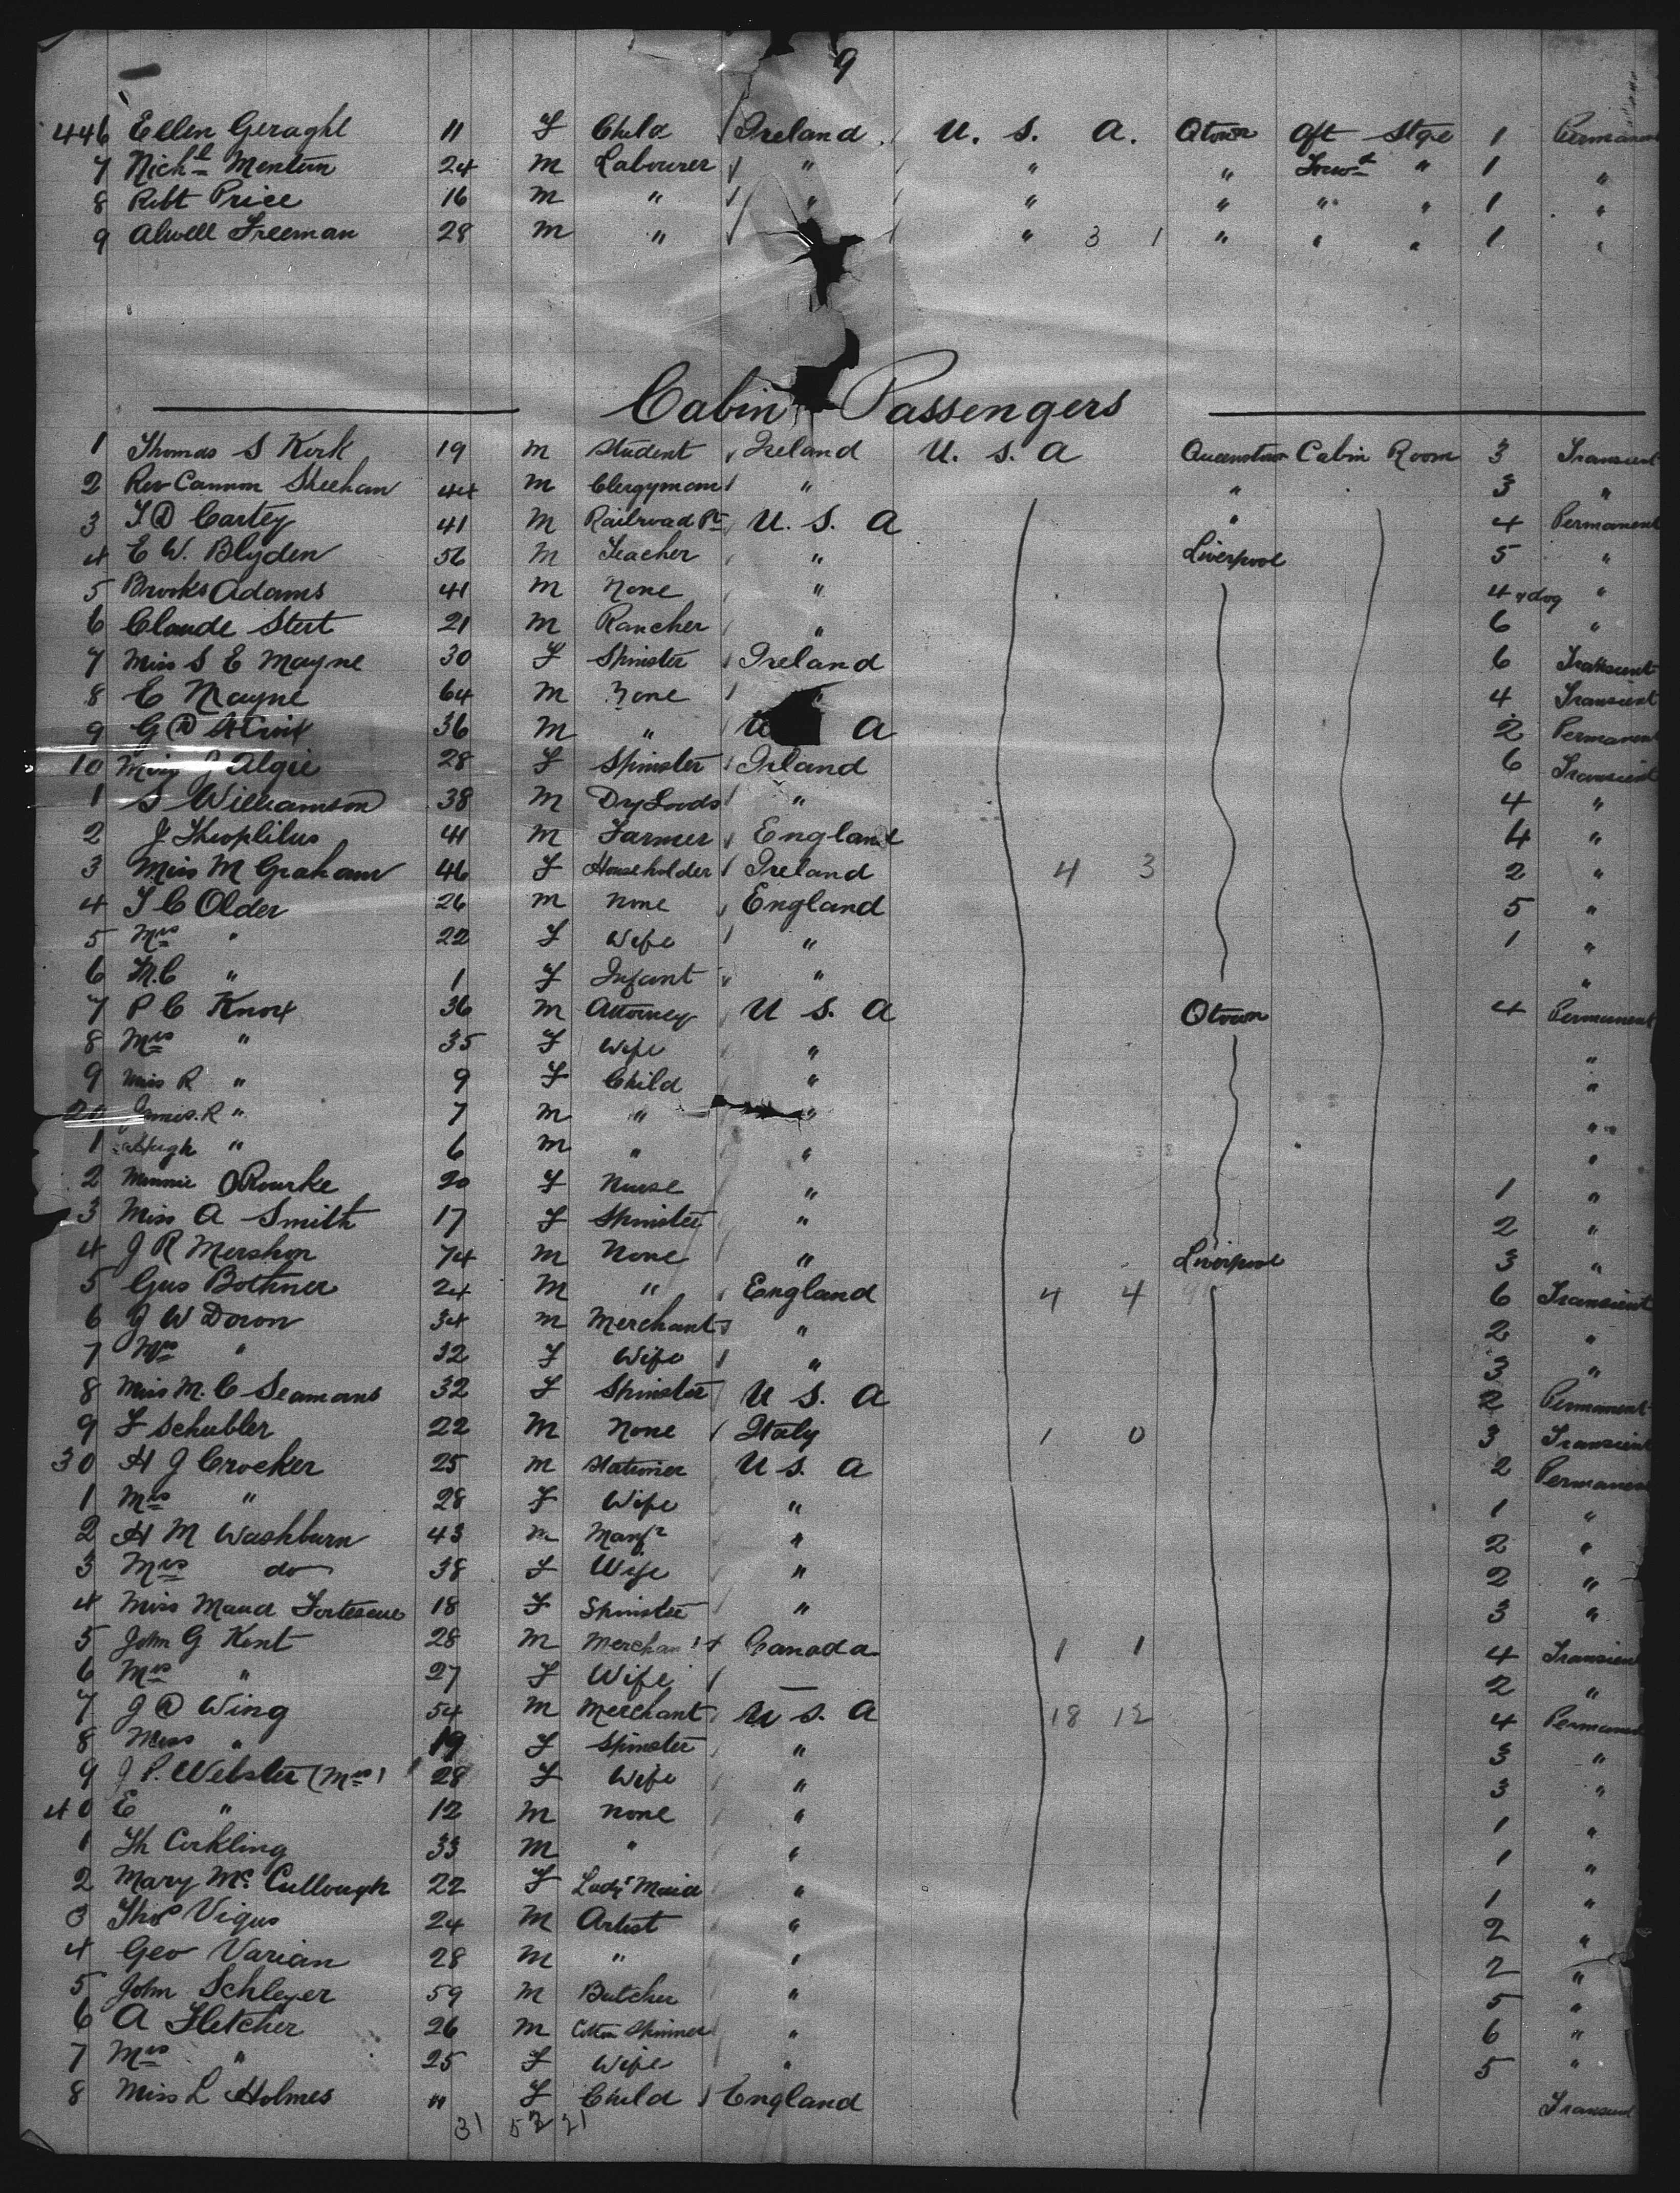 9
446 Ellen Geraght 11 F Child Ireland U. S. A. Qtown Aft Stge 1 Permanent
7 Nichl Mentun 24 M Labourer " " " Forwd " 1 "
8 Robt Price 16 M " " " " " " 1 "
9 Alwell Freeman 28 M " " 3 1 " " " 1 "
Cabin Passengers
1 Thomas S Kirk 19 M Student Ireland U. S. A Queenstown Cabin Room 3 Transient
2 Rev Cannon Sheehan 44 M Clergyman " " 3 "
3 T A Cartey 41 M Railroad Pt U. S. A " 4 Permanent
4 E W. Blyden 56 M Teacher " Liverpool 5 "
5 Brooks Adams 41 M None " 4 & dog "
6 Claude Stert 21 M Rancher " 6 "
7 Miss S E Mayne 30 F Spinster Ireland 6 Transient
8 E Mayne 64 M None " 4 Transient
9 G A St Croix 36 M " U A 2 Permanent
10 Miss J Algie 28 F Spinster Irland 6 Transient
1 S Williamson 38 M Dry Goods " 4 "
2 J Theophilus 41 M Farmer England 4 "
3 Miss M Graham 46 F Householder Ireland 4 3 2 "
4 T C Older 26 M None England 5 "
5 Mrs " 22 F Wife " 1 "
6 M.C " 1 F Infant " "
7 P C Knox 36 M Attorney U S. A Qtown 4 Permanent
8 Mrs " 35 F Wife " "
9 Miss R " 9 F Child " "
20 James. R " 7 M " " "
1 Hugh " 6 M " " "
2 Minnie O'Rourke 20 F Nurse " 1 "
3 Miss A Smith 17 F Spinster " 2 "
4 J R Mershon 74 M None " Liverpool 3 "
5 Gus Bothner 24 M " England 4 4 6 Transient
6 J W Doron 34 M Merchant " 2 "
7 Mrs " 32 F Wife " 3 "
8 Miss M. C Seamans 32 F Spinster U S. A 2 Permanent
9 F Schubler 22 M None Italy 1 0 3 Transient
30 H J Crocker 25 M Stationer U S. A 2 Permanent
1 Mrs " 28 F Wife " 1 "
2 H M Washburn 43 M Manfr " 2 "
3 Mrs do 38 F Wife " 2 "
4 Miss Maud Fortescue 18 F Spinster " 3 "
5 John G Kent 28 M Merchant Canada 1 1 4 Transient
6 Mrs " 27 F Wife — 2 "
7 J A Wing 54 M Merchant U S. A 18 12 4 Permanent
8 Miss " 19 F Spinster " 3 "
9 J P. Webster (Mrs) 28 F Wife " 3 "
40 E " 12 M None " 1 "
1 Th Corkling 33 M " " 1 "
2 Mary Mc Cullough 22 F Lady's Maid " 1 "
3 Thos Vigus 24 M Artist " 2 "
4 Geo Varian 28 M " " 2 "
5 John Schleyer 59 M Butcher " 5 "
6 A Fletcher 26 M Cotton Spinner " 6 "
7 Mrs " 25 F Wife " 5 "
8 Miss L Holmes " F Child England Transient
31 52 21